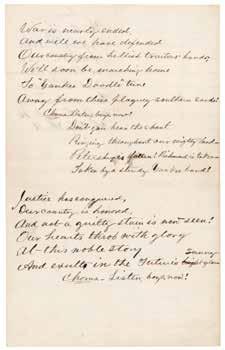 War is nearly ended,
And well we have defended
Our country from hellish traitors' hands,
We'll soon be marching home
To "Yankee Doodle" tune
Away from this plaguey southern land!
Chorus - Listen boys now!
Don't you hear the shout
Ringing throughout our mighty land -
Petersburg's fallen! Richmond is taken -
Taken by a sturdy Yankee band!
Justice has conquered,
Our country is honored,
And not a guilty stain is now seen!
Our hearts throb with glory
At this noble story
And exults in the Future's sunny
Chorus - Listen boys now!